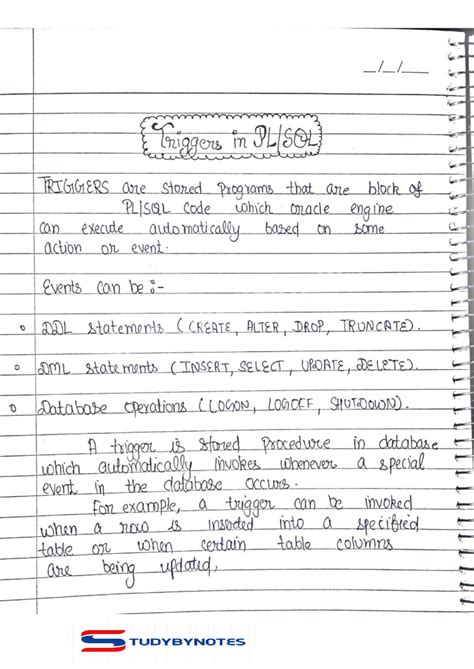 _/_/___
Triggers in PL/SQL
TRIGGERS are stored programs that are block of
PL/SQL code which oracle engine
can execute automatically based on some
action or event.
Events can be :-
DDL statements (CREATE, ALTER, DROP, TRUNCATE).
DML statements (INSERT, SELECT, UPDATE, DELETE).
Database operations (LOGON, LOGOFF, SHUTDOWN).
A trigger is stored procedure in database
which automatically invokes whenever a special
event in the database occurs.
For example, a trigger can be invoked
when a row is inserted into a specified
table or when certain table columns
are being updated,
STUDYBYNOTES